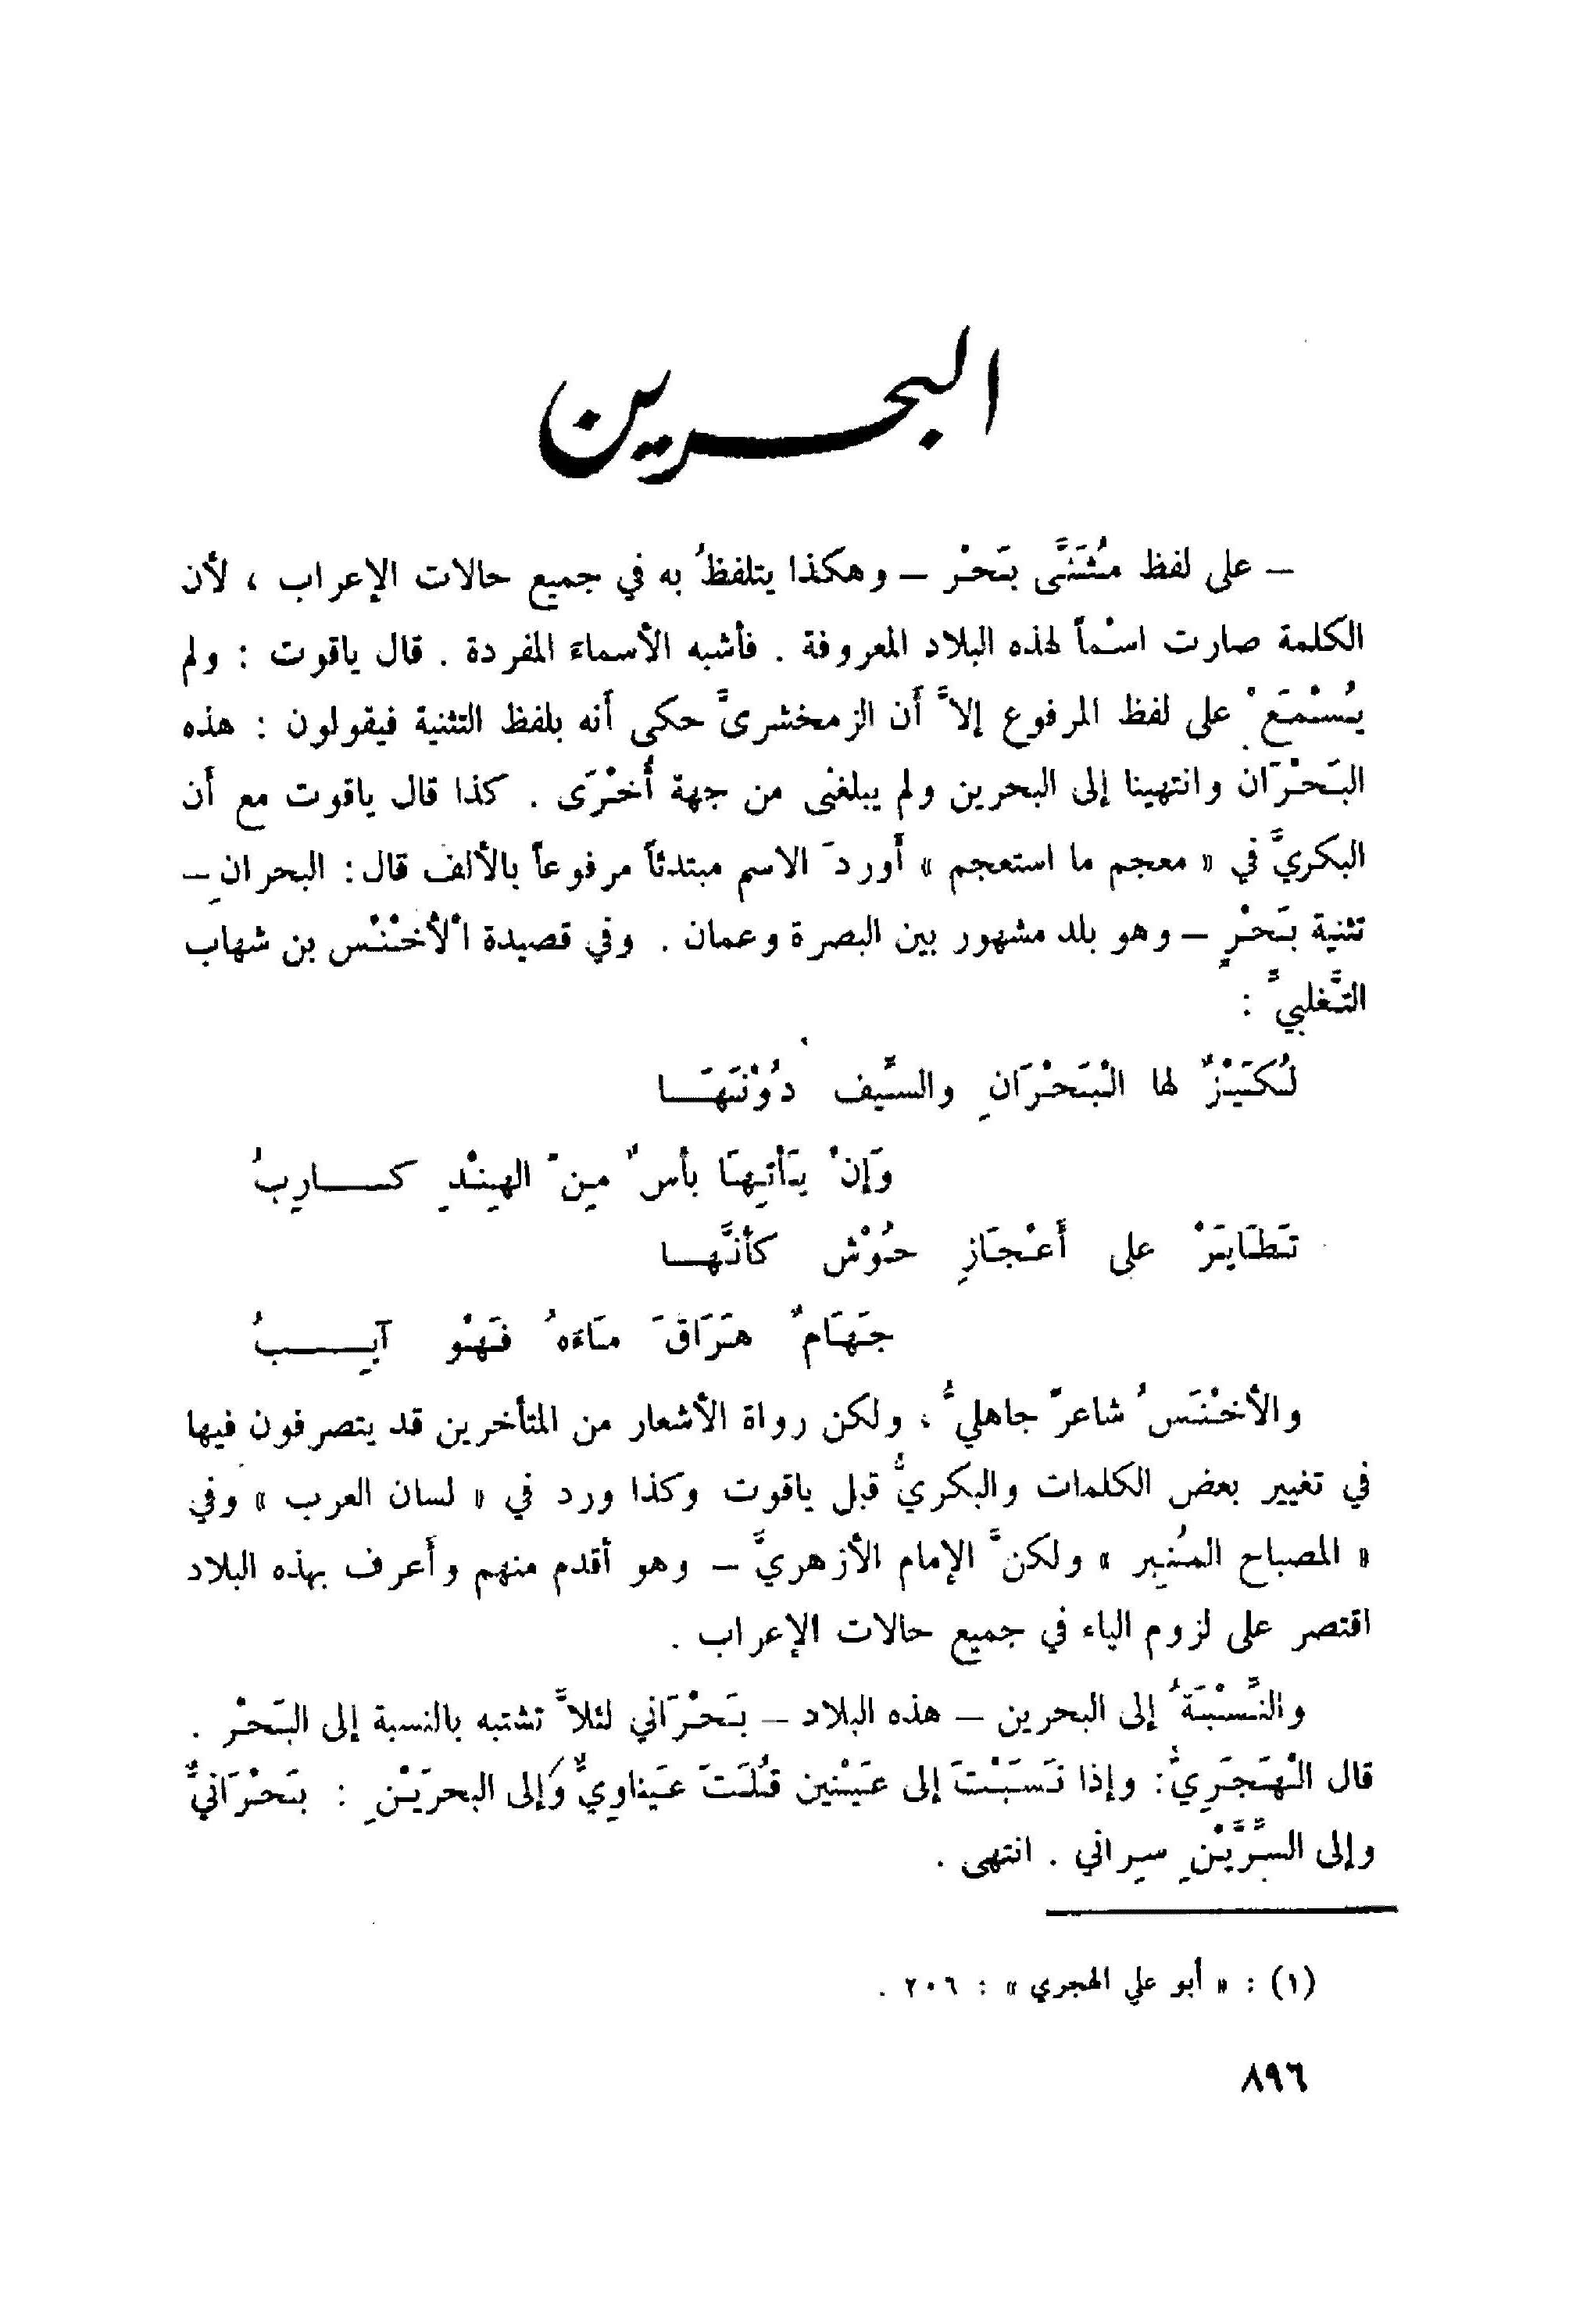 البحرين
– على لفظ مُثَنَّى بَحْر – وهكذا يتلفظُ به في جميع حالات الإعراب ، لأن
الكلمة صارت اسْماً لهذه البلاد المعروفة . فأشبه الأسماءَ المفردة . قال ياقوت : ولم
يُسْمَعْ على لفظ المرفوع إلاَّ أن الزمخشرىَّ حكى أنه بلفظ التثنية فيقولون : هذه
البَحْرَان وانتهينا إلى البحرين ولم يبلغنى من جهة أُخْرَى . كذا قال ياقوت مع أن
البكريَّ في « معجم ما استعجم » أوردَ الاسم مبتدئاً مرفوعاً بالألف قال : البحرانِ –
تثنية بَحْرٍ – وهو بلد مشهور بين البصرة وعمان . وفي قصيدة اْلأخْنَس بن شهاب
التَّغلبيَّ :
لُكَيْزٌ لها الْبَحْرَانِ والسِّيف دُوْنَهَا
وَإنْ يَأتِهَا بأسٌ مِنَ الهِنْدِ كارِبُ
تَطَايَرْ على أَعْجَازِ حُوْش كأنَّها
جَهَامٌ هَرَاقَ مَاءَهُ فَهْو آيِبُ
والأخْنَسُ شاعرٌ جاهليُّ ، ولكن رواة الأشعار من المتأخرين قد يتصرفون فيها
في تغيير بعض الكلمات والبكريُّ قبل ياقوت وكذا ورد في « لسان العرب » وفي
« المصباح المُنِير » ولكنَّ الإمام الأزهريَّ – وهو أقدم منهم وأعرف بهذه البلاد
اقتصر على لزوم الياء في جميع حالات الإعراب .
والنِّسْبَةُ إلى البحرين – هذه البلاد – بَحْرَاني لئلاَّ تشتبه بالنسبة إلى البَحْر .
قال الْهَجَرِيُّ : وإذا نَسَبْتَ إلى عَيْنَين قُلْتَ عَيناوِيٌّ وَإلى البحرَيْنِ : بَحْرَانيٌّ
وإلى السِّرَّيْنِ سِراني . انتهى .
(١) : « أبو علي الهجري » : ٢٠٦ .
٨٩٦